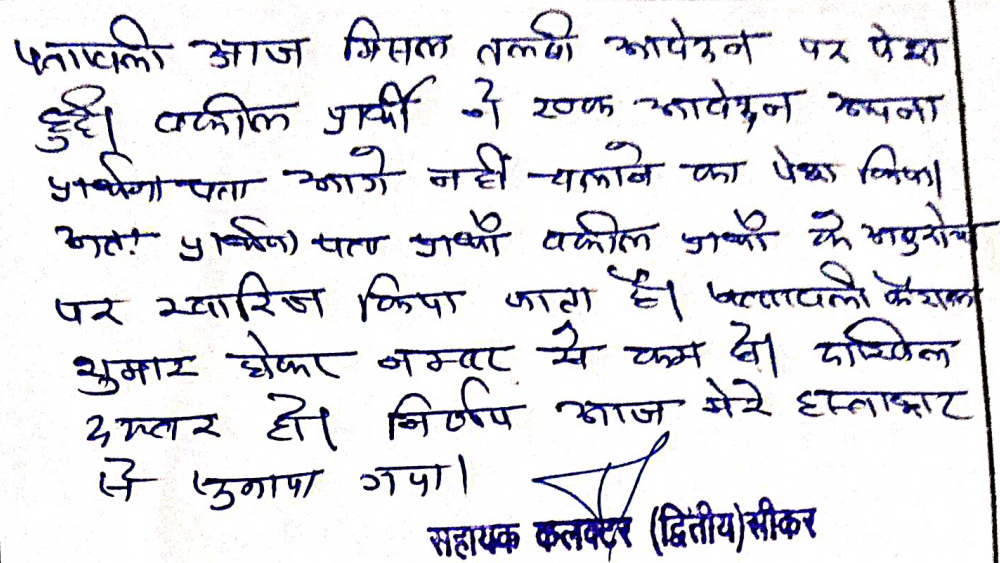 पत्रावली आज मिसल तलबी आवेदन पर पेश
हुई। वकील प्रार्थी ने एक आवेदन अपना
प्रार्थना पत्र आगे नहीं चलाने का पेश किया।
अतः प्रार्थना पत्र प्रार्थी वकील प्रार्थी के अनुरोध
पर खारिज किया जाता है। पत्रावली फैसल
शुमार होकर नम्बर से कम हो। दाखिल
दफ्तर हो। निर्णय आज मेरे हस्ताक्षर
से सुनाया गया।
सहायक कलक्टर (द्वितीय) सीकर